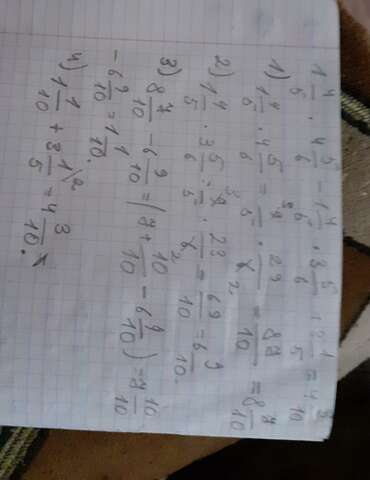 1 4/5 · 4 5/6 - 1 4/5 · 3 5/6 + 2 1/5 = 4 3/10
1) 1 4/5 · 4 5/6 = 9/5 · 29/6 2 = 87/10 = 8 7/10
2) 1 4/5 · 3 5/6 = 9/5 · 23/6 2 = 69/10 = 6 9/10.
3) 8 7/10 - 6 9/10 = (7 + 10/10 - 6 9/10) = 7 10/10
- 6 9/10 = 1 1/10.
4) 1 1/10 + 3 1\2/5 = 4 3/10.